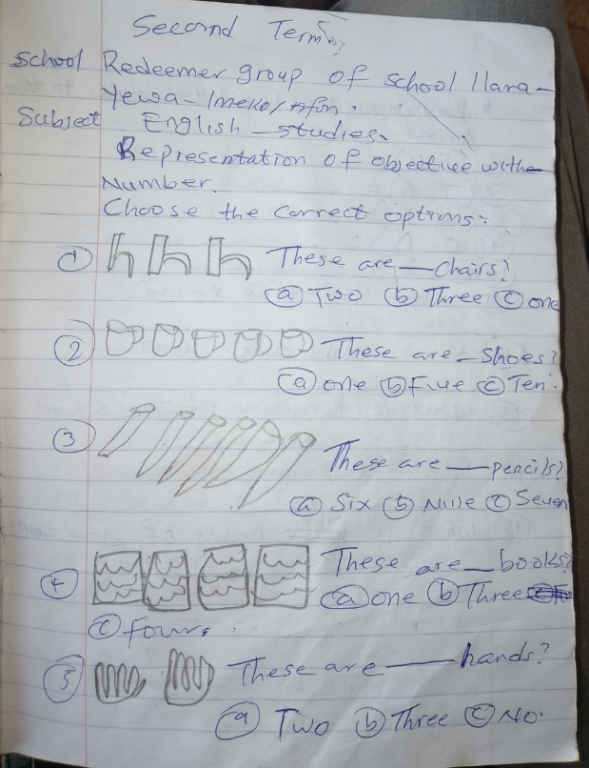 Second Term,
School Redeemer group of school Ilara-
Yewa-Imeko/Afon.
Subject English-studies.
Representation of objective withe
Number.
Choose the correct options:
① These are — chairs?
ⓐ Two ⓑ Three ⓒ one
② These are - Shoes?
ⓐ one ⓑ Five ⓒ Ten.
③ These are — pencils?
ⓐ Six ⓑ Nine ⓒ Seven
④ These are — books?
ⓐ one ⓑ Three
ⓒ fours.
⑤ These are — hands?
ⓐ Two ⓑ Three ⓒ No.